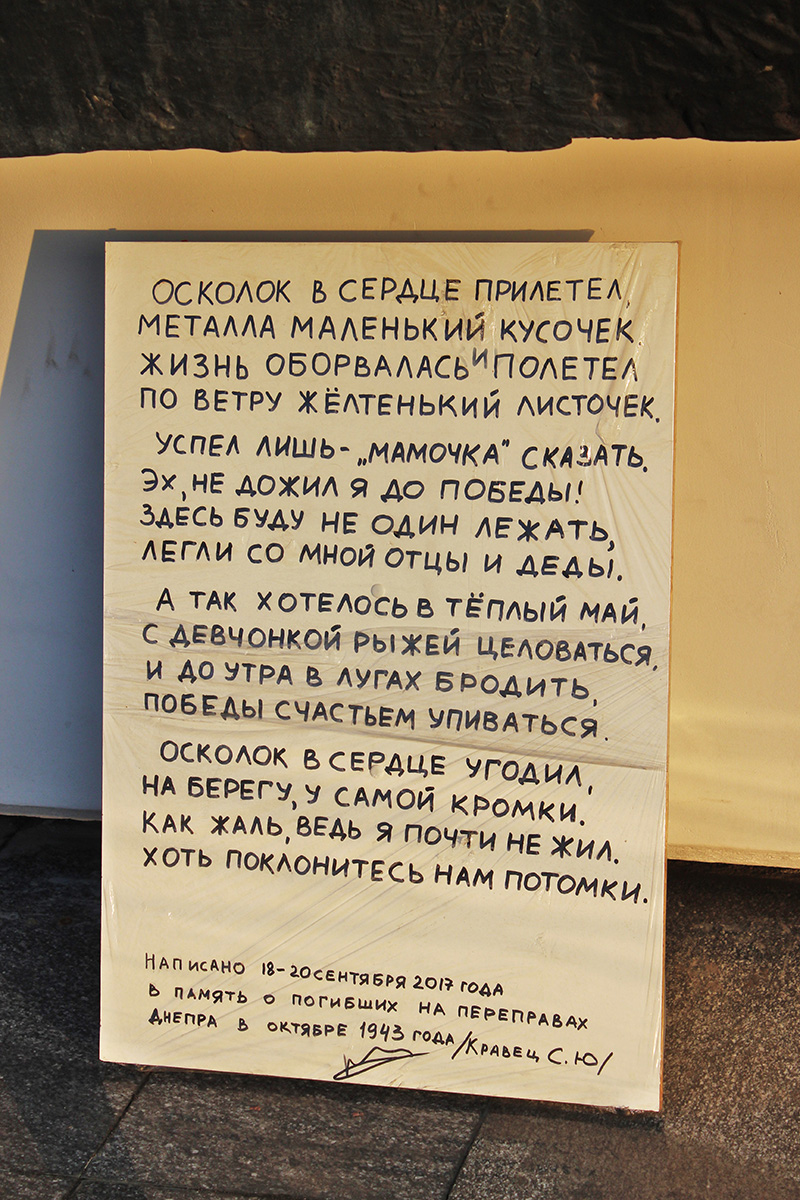 ОСКОЛОК В СЕРДЦЕ ПРИЛЕТЕЛ,
МЕТАЛЛА МАЛЕНЬКИЙ КУСОЧЕК.
ЖИЗНЬ ОБОРВАЛАСЬ И ПОЛЕТЕЛ
ПО ВЕТРУ ЖЁЛТЕНЬКИЙ ЛИСТОЧЕК.
УСПЕЛ ЛИШЬ - „МАМОЧКА" СКАЗАТЬ.
ЭХ, НЕ ДОЖИЛ Я ДО ПОБЕДЫ!
ЗДЕСЬ БУДУ НЕ ОДИН ЛЕЖАТЬ,
ЛЕГЛИ СО МНОЙ ОТЦЫ И ДЕДЫ.
А ТАК ХОТЕЛОСЬ В ТЁПЛЫЙ МАЙ,
С ДЕВЧОНКОЙ РЫЖЕЙ ЦЕЛОВАТЬСЯ,
И ДО УТРА В ЛУГАХ БРОДИТЬ,
ПОБЕДЫ СЧАСТЬЕМ УПИВАТЬСЯ.
ОСКОЛОК В СЕРДЦЕ УГОДИЛ,
НА БЕРЕГУ, У САМОЙ КРОМКИ.
КАК ЖАЛЬ, ВЕДЬ Я ПОЧТИ НЕ ЖИЛ.
ХОТЬ ПОКЛОНИТЕСЬ НАМ ПОТОМКИ.
НАПИСАНО 18-20 СЕНТЯБРЯ 2017 ГОДА
В ПАМЯТЬ О ПОГИБШИХ НА ПЕРЕПРАВАХ
ДНЕПРА В ОКТЯБРЕ 1943 ГОДА /КРАВЕЦ С.Ю/